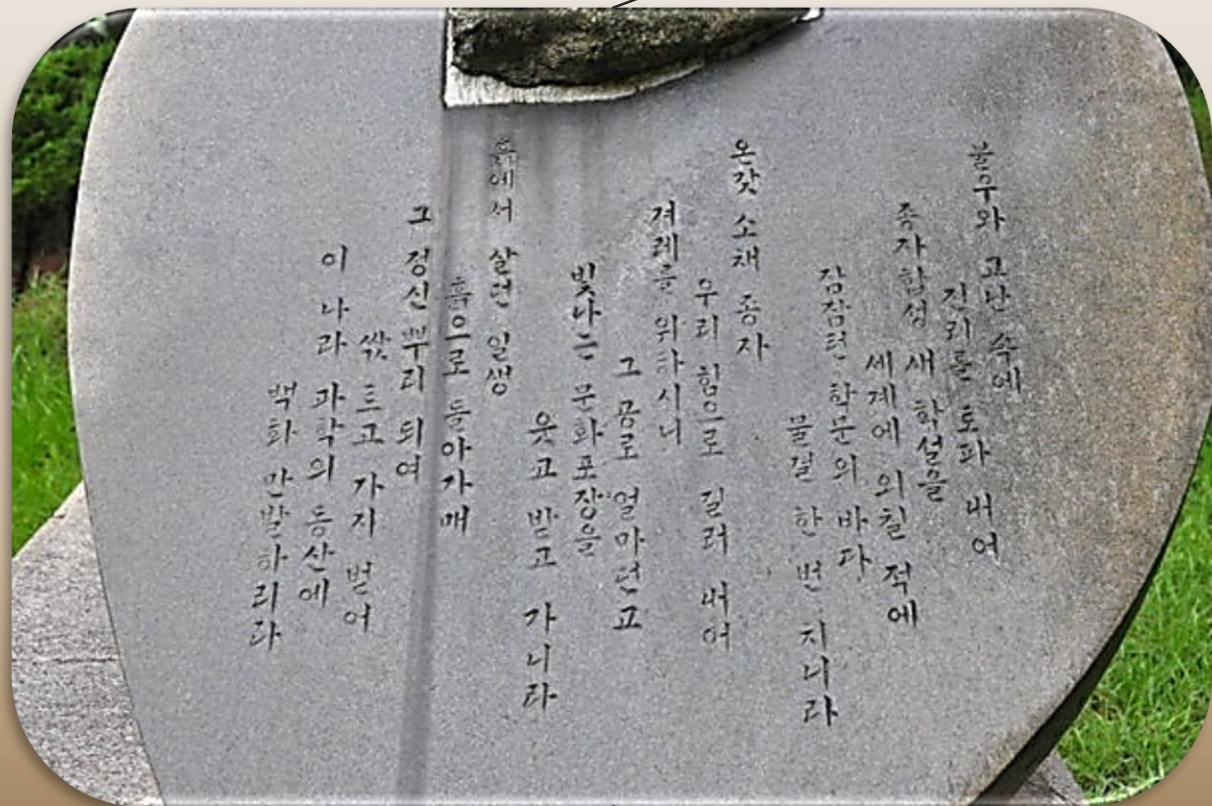 불우와 고난 속에
진리를 토파 내여
종자합성 새 학설을
세계에 외칠 적에
잠잠턴 학문의 바다
물결 한 번 치니라
온갖 소채 종자
우리 힘으로 길러 내여
겨레를 위하시니
그 공로 얼마런고
빛나는 문화포장을
웃고 받고 가니라
흙에서 살던 일생
흙으로 돌아가매
그 정신 뿌리 되여
싹 트고 가지 벋어
이 나라 과학의 동산에
백화 만발하리라